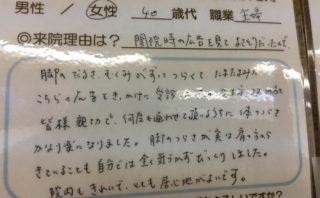 男性 / 女性 40 歳代 職業 主婦
◎来院理由は? 開院時の広告を見て まえをとおったので、
脚のだるさ、むくみがずっとつらくて、たまたまみた
こちらの広告をきっかけに受診
皆様 親切で、何度も通わせて頂くうちに 体つらさが
かなり楽になりました。脚のつらさが実は肩・首から
きていることも自分では全く気づかずびっくりしました。
院内もきれいで、とても居心地がよいです。